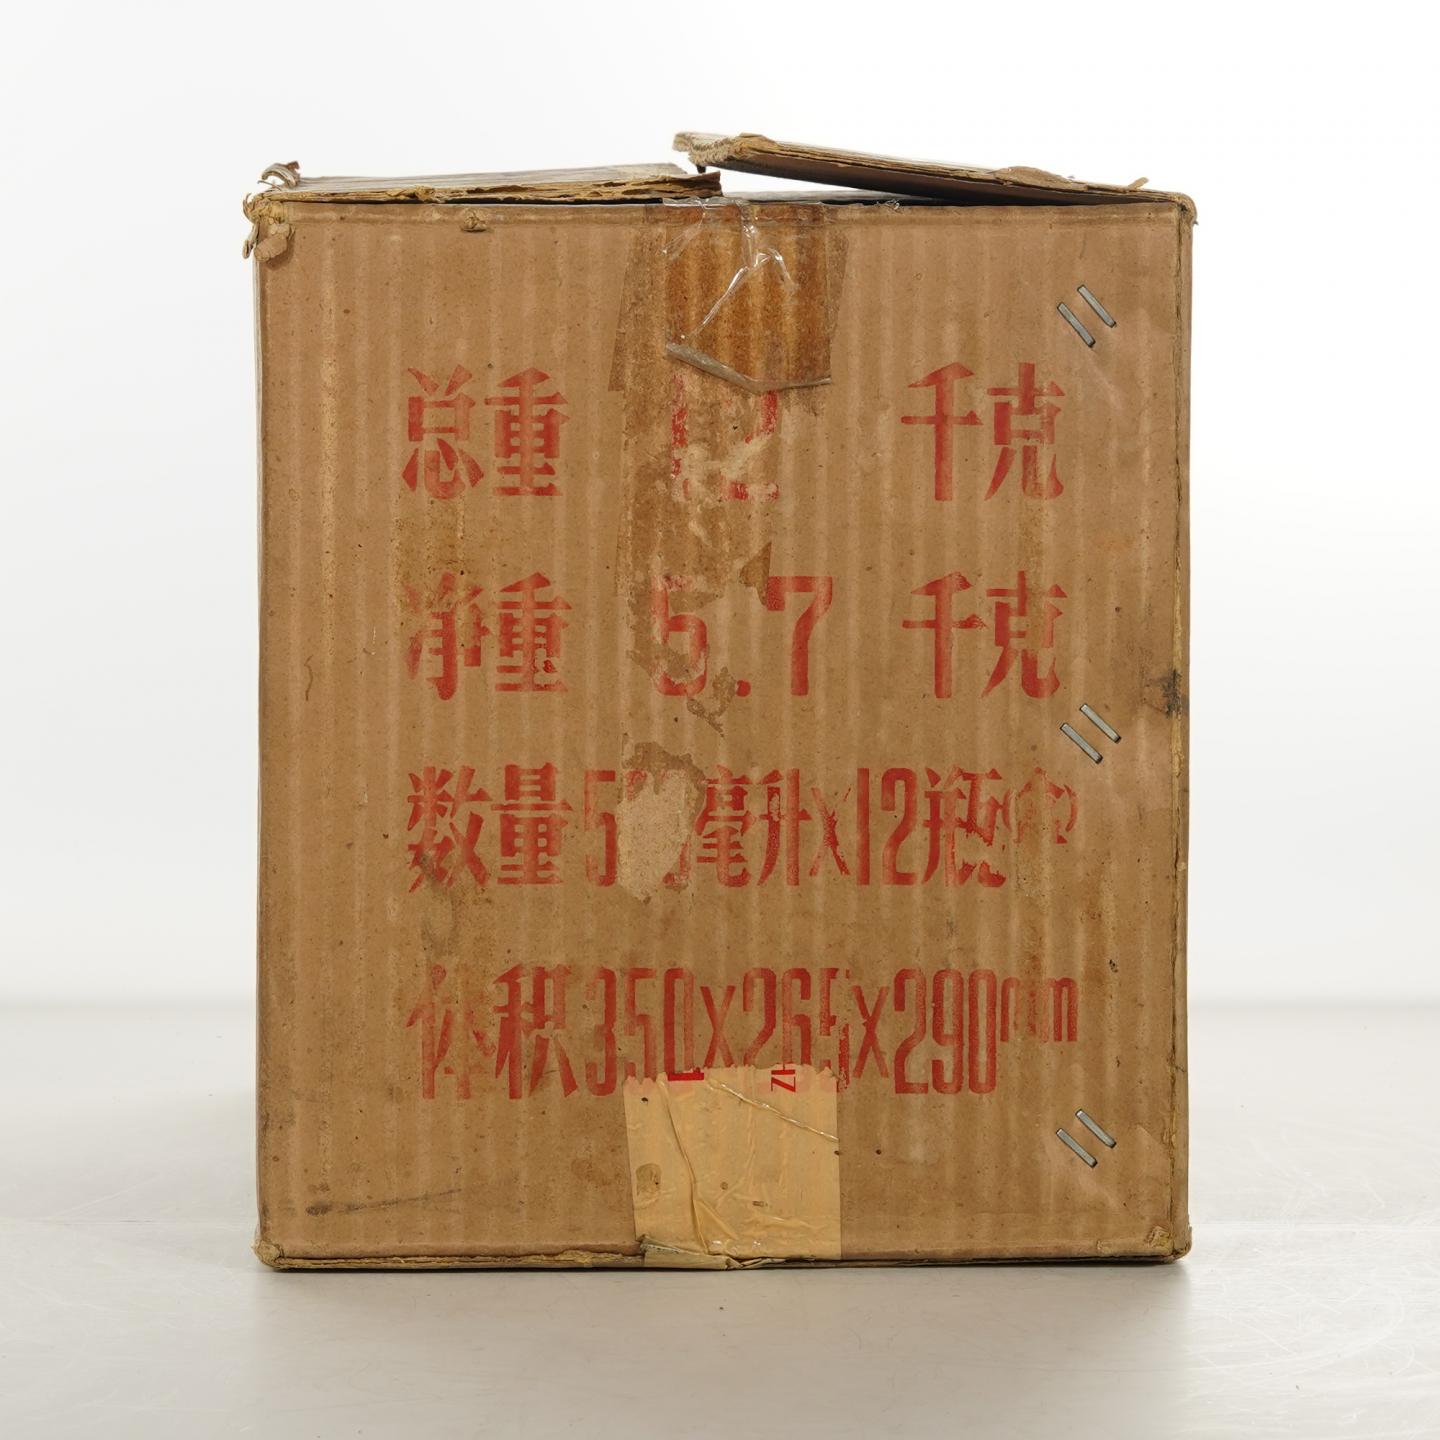 总重 12 千克
净重 5.7 千克
数量5 毫升x12瓶
体积350x265x290mm